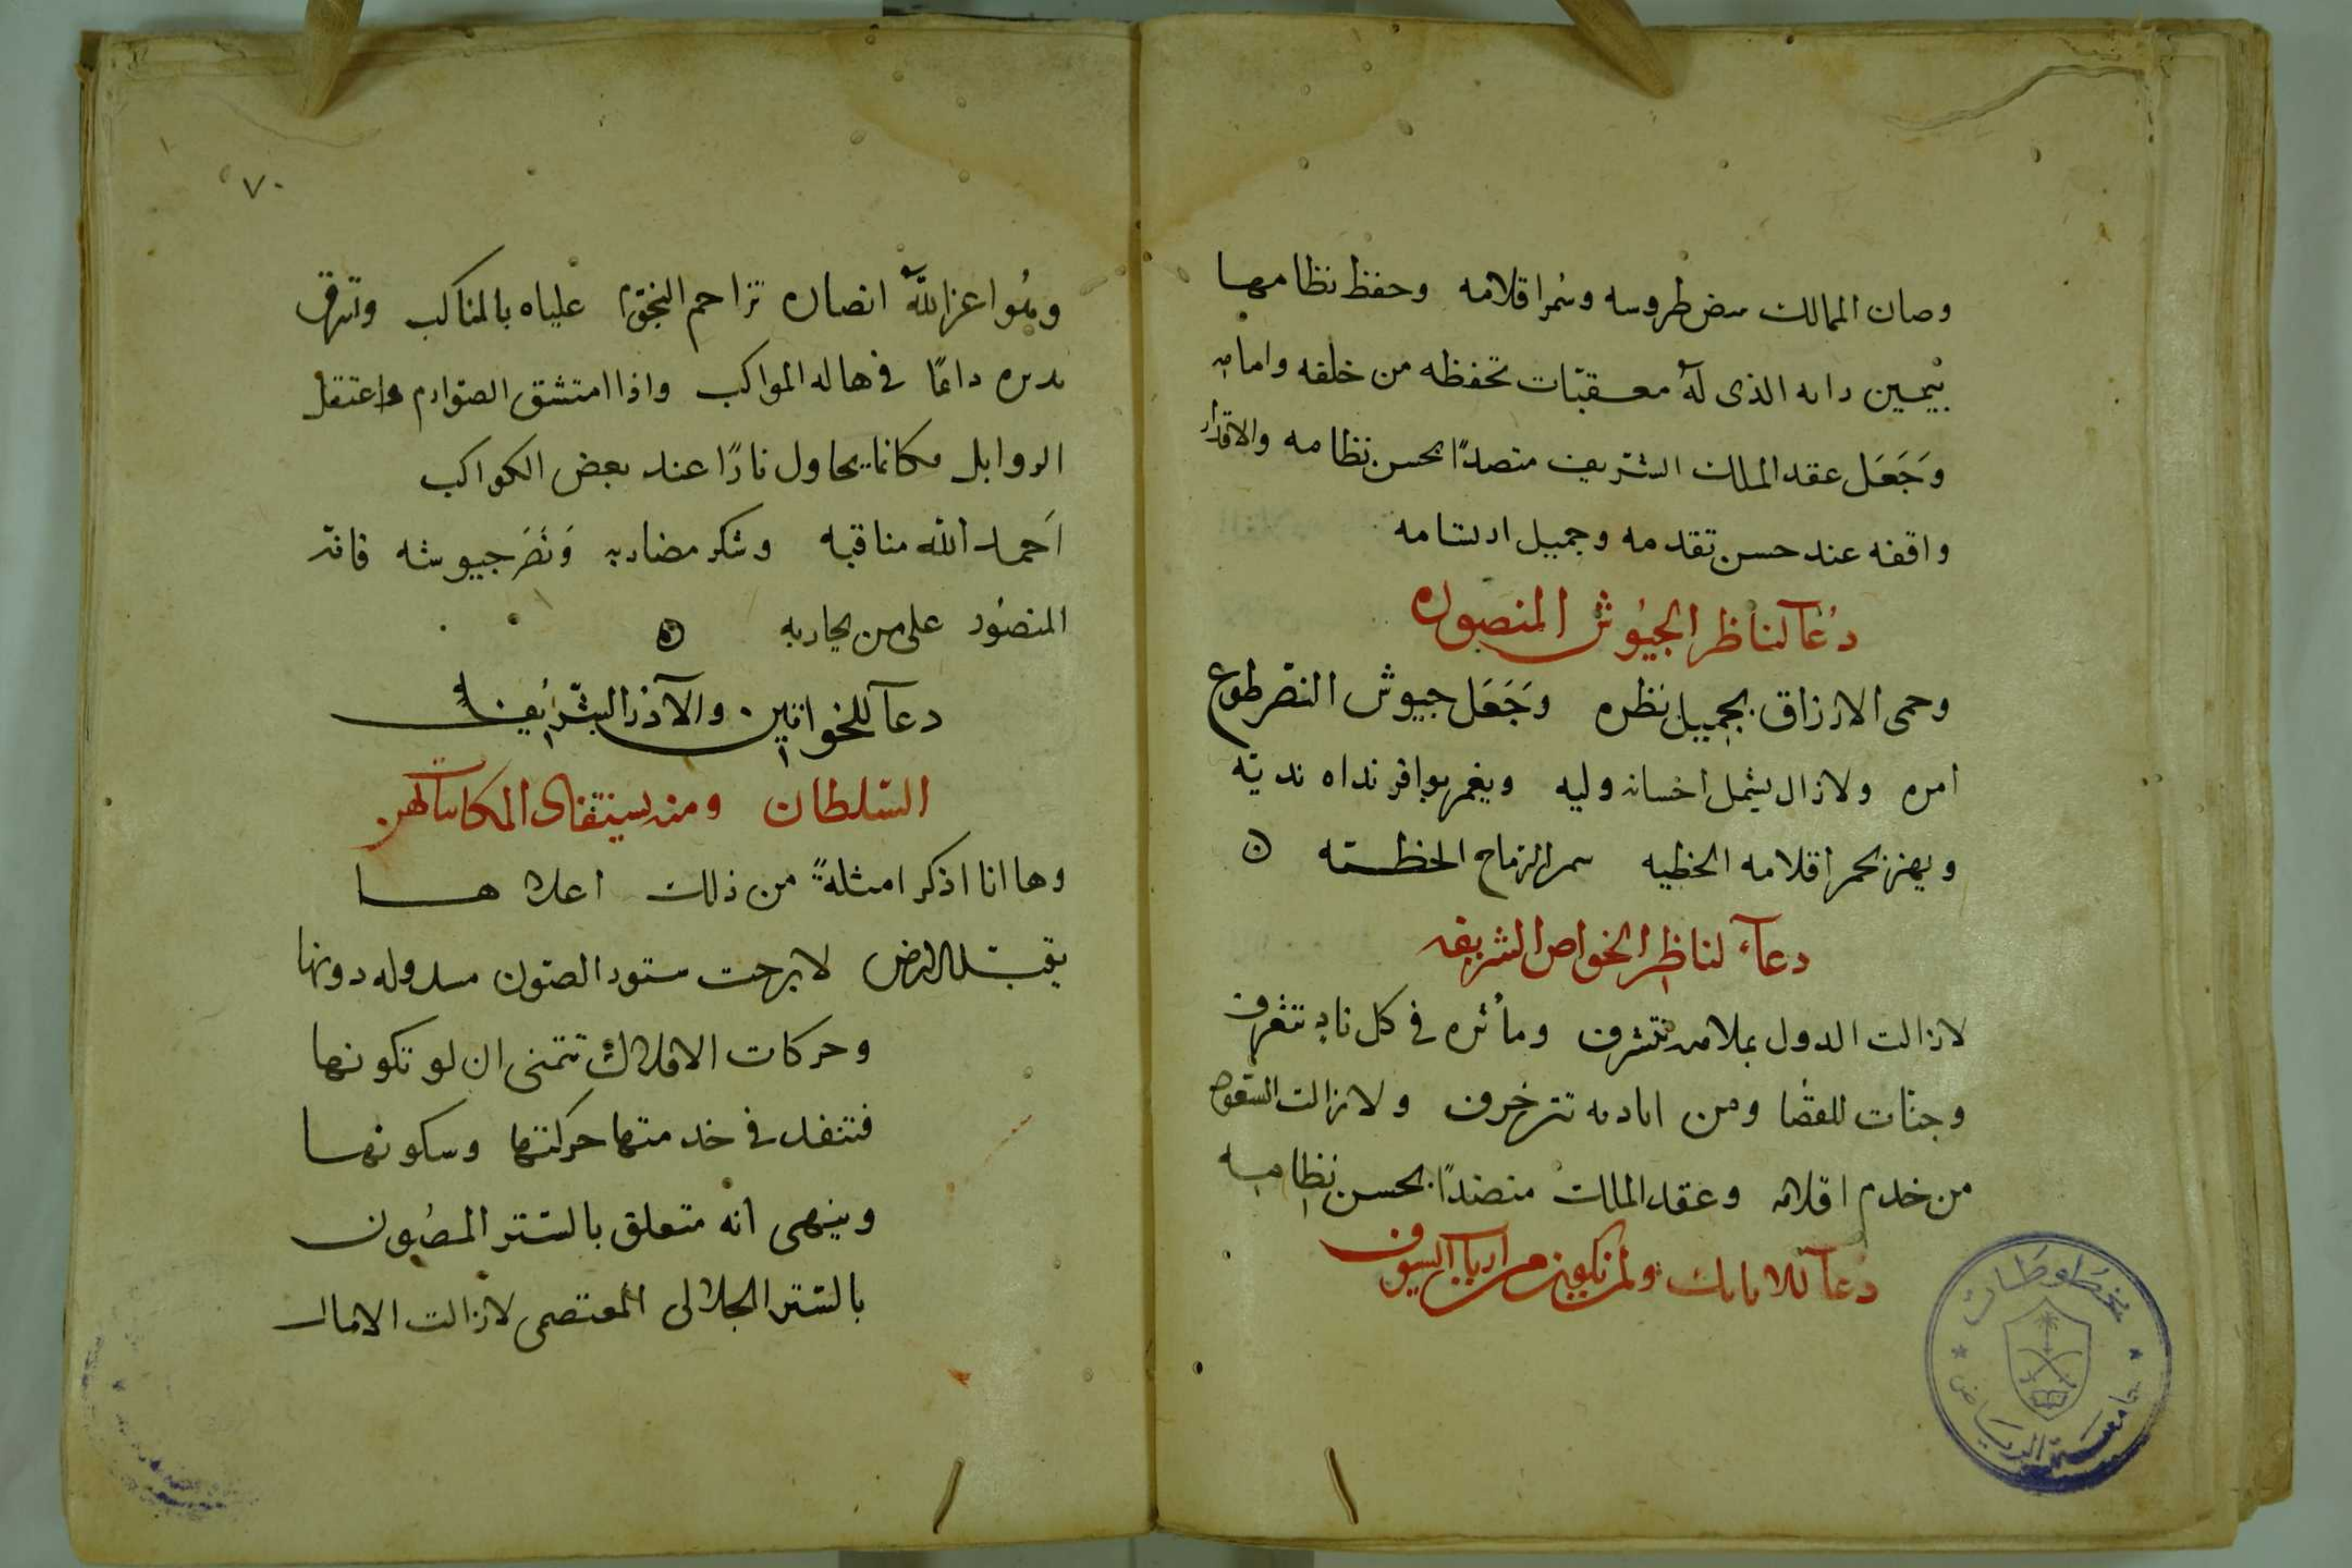 وصان الممالك ببيض طروسه وسمر اقلامه وحفظ نظامها
بيمين رايه الذى له معقبات تحفظه من خلفه وامامه
وَجَعَل عقد الملك الشريف منضدًا بحسن نظامه والاقدار
واقفه عند حسن تقدمه وجميل ارتسامه
دُعآ لناظر الجيُوش المنصوره
وحمى الارزاق بجميل نظره وَجَعَل جيوش النصر طوع
امره ولازال يشمل احسانه وليه ويغمر بوافر نداه نديّه
ويهز بحمر اقلامه الخطيه سمر الرماح الخطـيّه ن
دعآء لناظر الخواص الشريفه
لازالت الدول بملامه تتشرف ومأثره في كل نادٍ تتعرف
وجنّات للفضا ومن اياديه تتزخرف ولازالت السعود
من خدم اقلامه وعقد الملك منضدًا بحسن نظامه
دعآ للاتابك ولمن يكون من ارباب السيوف
٧٠
وهُو اعز اللّٰه انصاره تزاحم النجوم علياه بالمناكب وتشرق
بدره دائمًا في هاله المواكب واذا امتشق الصوارم واعتقل
الذوابل فكانما يحاول نارًا عند بعض الكواكب
اَحمد الله مناقبه وشكر مضاربه وَنَصَر جيوشه فانه
المنصُور على من يحاربه ن
دعآ للخواتين والآدر الشريفه
السّلطان ومن يستقنا المكاتبآت لهن
وها انا اذكر امثلةً من ذلك اعلاها
يقبّل الارض لا برحت ستور الصّون مسدوله دونها
وحركات الافلاك تتمنى ان لو تكونها
فتنفد في خدمتها حركتها وسكونها
وينهى انه متعلق بالسّتر المصُون
بالستر الجلالى المعتصمى لازالت الامال
مخطوطات
جامعة الرياض